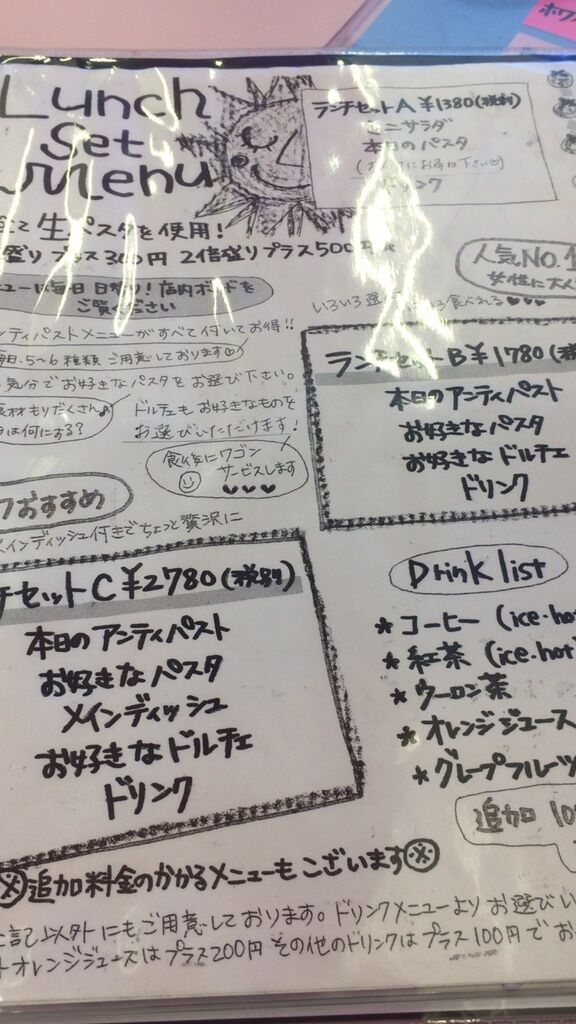 Lunch
Set
Menu
ランチセットA ¥1380(税別)
ミニサラダ
本日のパスタ
ドリンク
全て生パスタを使用!
盛りプラス300円 2倍盛りプラス500円
人気NO.1
女性に大人
ューは毎日日替り!店内ボードを
ご覧ください
いろいろ選 食べれる♥♥♥
ンティパストメニューがすべて付いてお得!!
毎日.5~6種類ご用意しております♡
気分でお好きなパスタをお選び下さい。
食材もりだくさん♪
は何にする?
ドルチェもお好きなものを
お選びいただけます!
食後にワゴン
サービスします
♥♥♥
ランチセットB ¥1780(税
本日のアンティパスト
お好きなパスタ
お好きなドルチェ
ドリンク
フおすすめ
メインディッシュ付きでちょっと贅沢に
チセットC ¥2780(税別)
本日のアンティパスト
お好きなパスタ
メインディッシュ
お好きなドルチェ
ドリンク
Drink list
★コーヒー(ice・ho
★紅茶(ice・hot
★ウーロン茶
★オレンジジュース
★グレープフルーツ
追加 10
※追加料金のかかるメニューもございます※
上記以外にもご用意しております。ドリンクメニューよりお選びい
トオレンジジュースはプラス200円 その他のドリンクはプラス100円でお